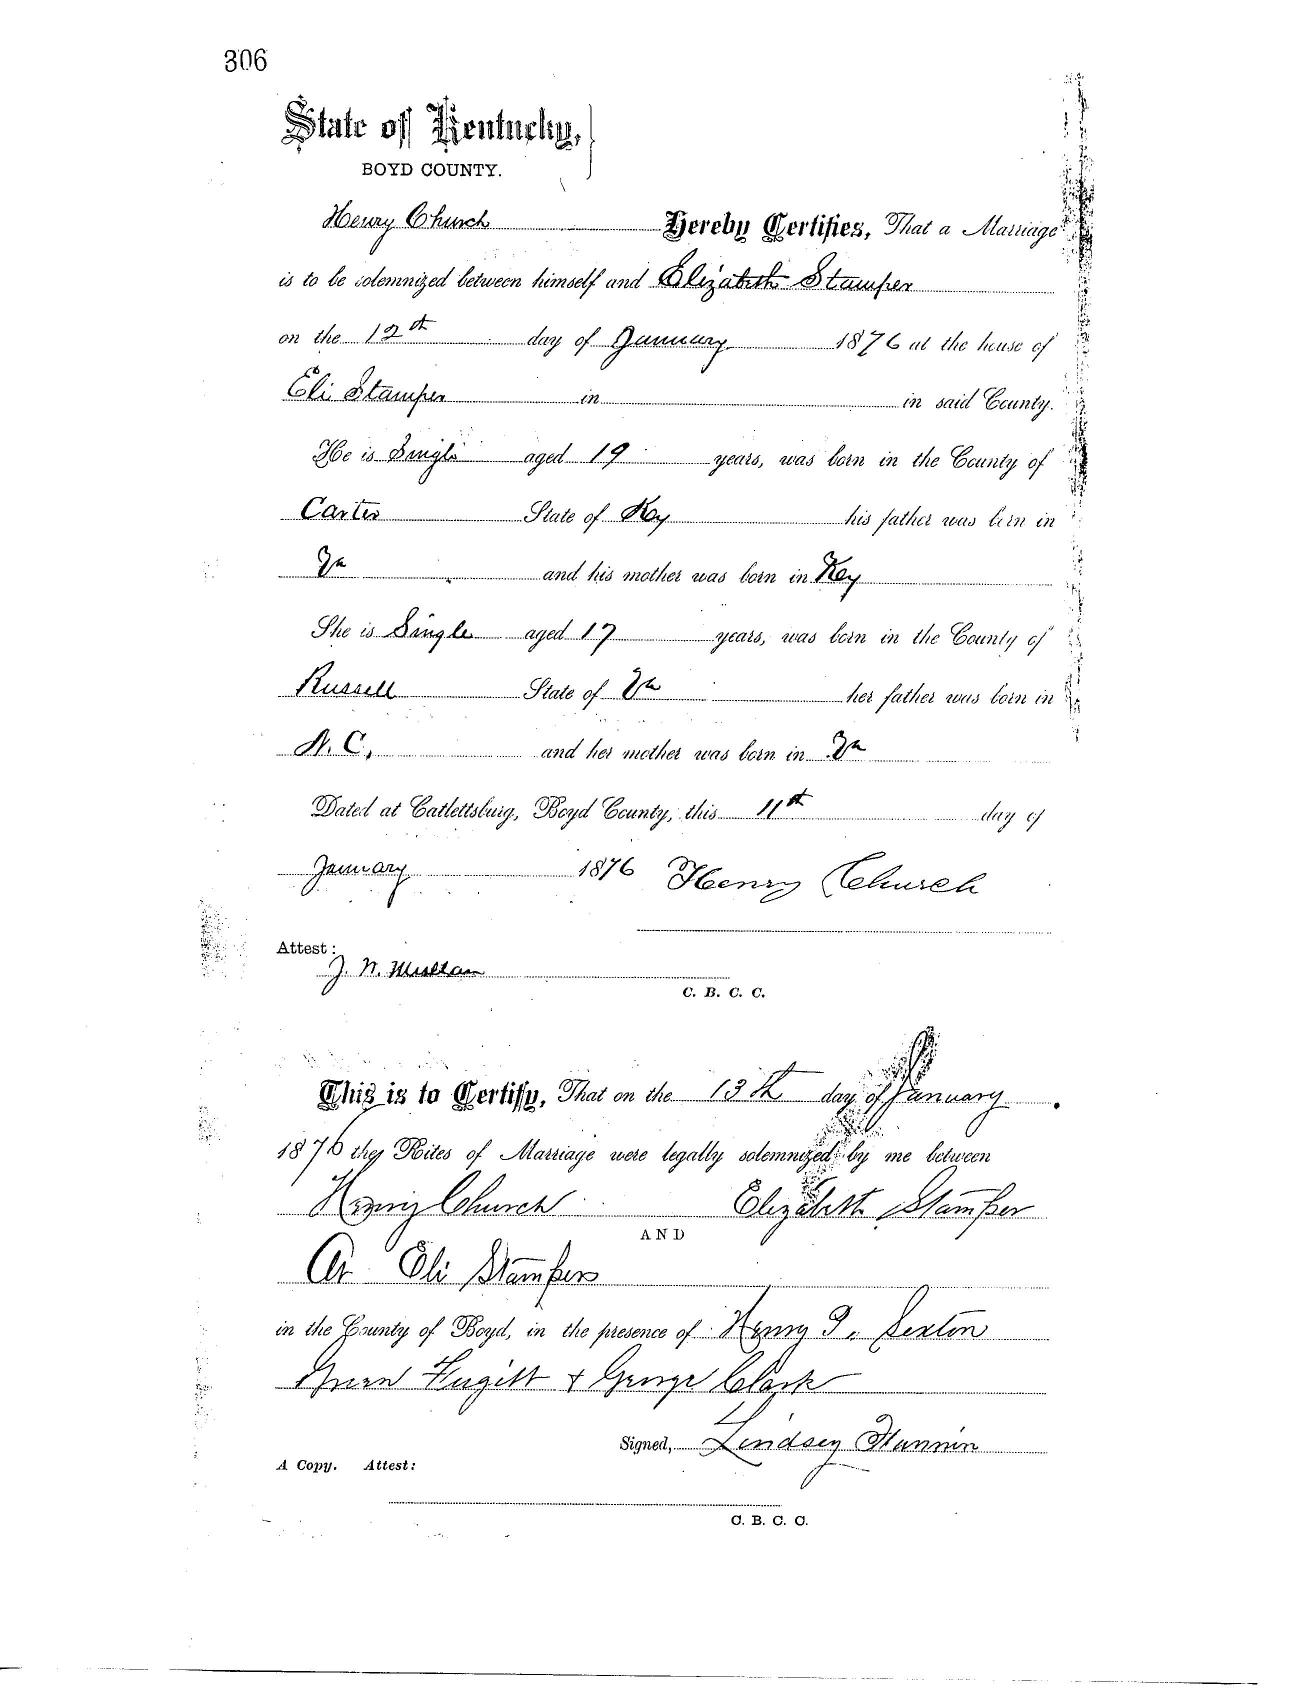 306
State of Kentucky,
BOYD COUNTY.
Henry Church Hereby Certifies, That a Marriage
is to be solemnized between himself and Elizabeth Stamper
on the 12th day of January 1876 at the house of
Eli Stamper in in said County.
He is Single aged 19 years, was born in the County of
Carter State of Ky his father was born in
Va and his mother was born in Key
She is Single aged 17 years, was born in the County of
Russell State of Va her father was born in
N. C. and her mother was born in Va
Dated at Catlettsburg, Boyd County, this 11th day of
January 1876 Henry Church
Attest:
J. W.
C. B. C. C.
This is to Certify, That on the 13th day of January
1876 the Rites of Marriage were legally solemnized by me between
Henry Church Elizabeth Stamper
AND
At Eli Stampers
in the County of Boyd, in the presence of Henry Sexton
Fugitt & George Clark
Signed, Lindsey Hannin
A Copy. Attest:
C. B. C. C.